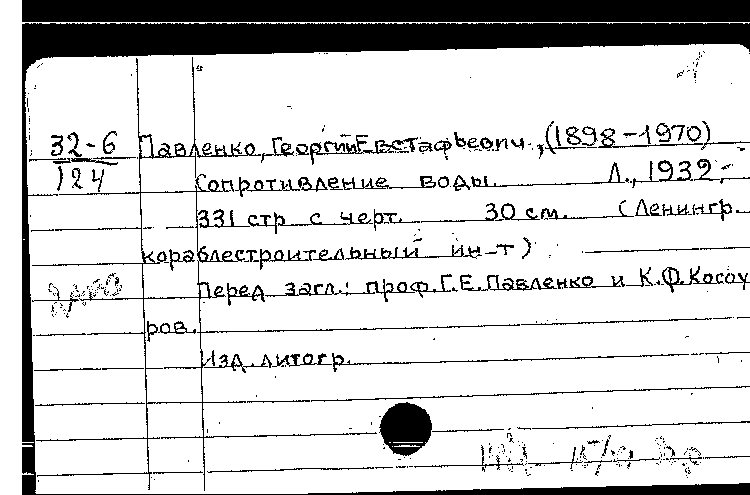 32-6 Павленко, Георгий Евстафьевич, (1898-1970)
124 Сопротивление воды. Л., 1932.-
331 стр. с черт. 30 см. (Ленингр.
кораблестроительный ин-т)
Перед загл.: проф. Г.Е. Павленко и К.Ф. Косоу
ров.
Изд. литогр.